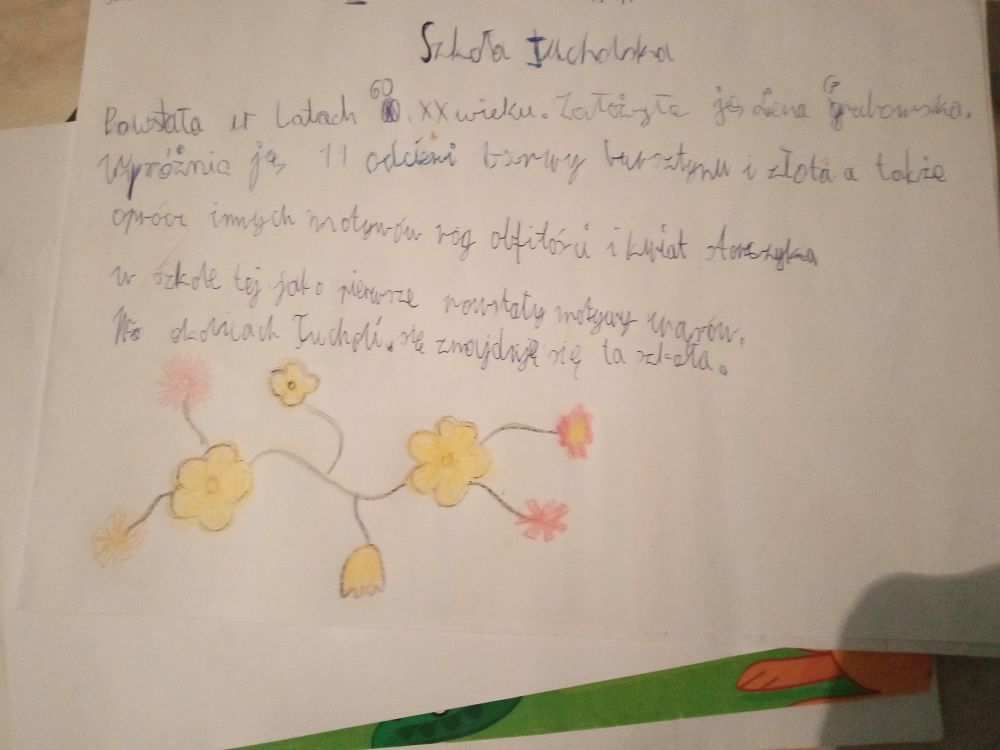 Szkoła Tucholska
Powstała w Latach 60. XX wieku. Założyła ją Lena Grabowska.
Wyróżnia ją 11 odcieni barwy bursztynu i złota a także
oprócz innych motywów róg obfitości i kwiat
w szkole tej jako pierwsze powstały motywy wazów.
W okolicach Tucholi. się znajduję się ta szkoła.